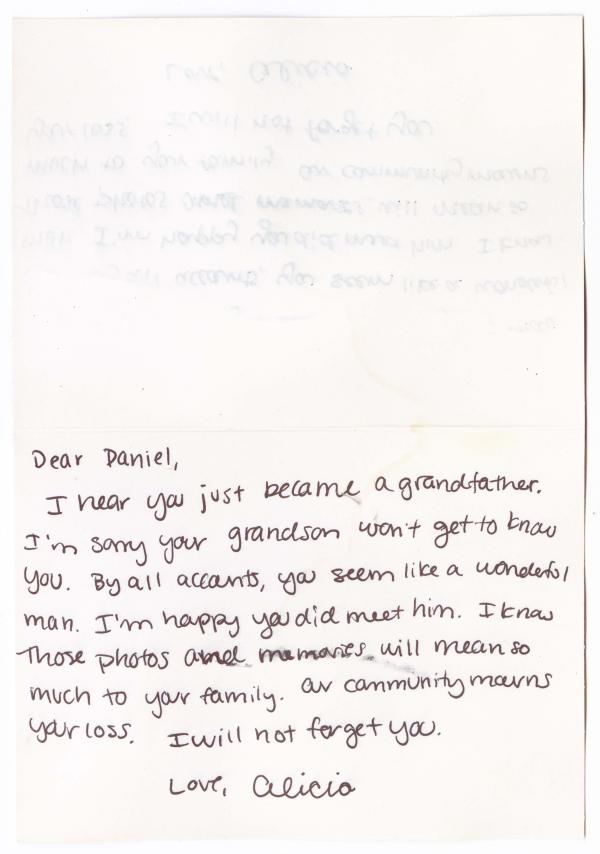 Dear Daniel,
I hear you just became a grandfather.
I'm sorry your grandson won't get to know
you. By all accounts, you seem like a wonderful
man. I'm happy you did meet him. I know
Those photos and memories will mean so
much to your family. Our community mourns
your loss. I will not forget you.
Love, Alicia